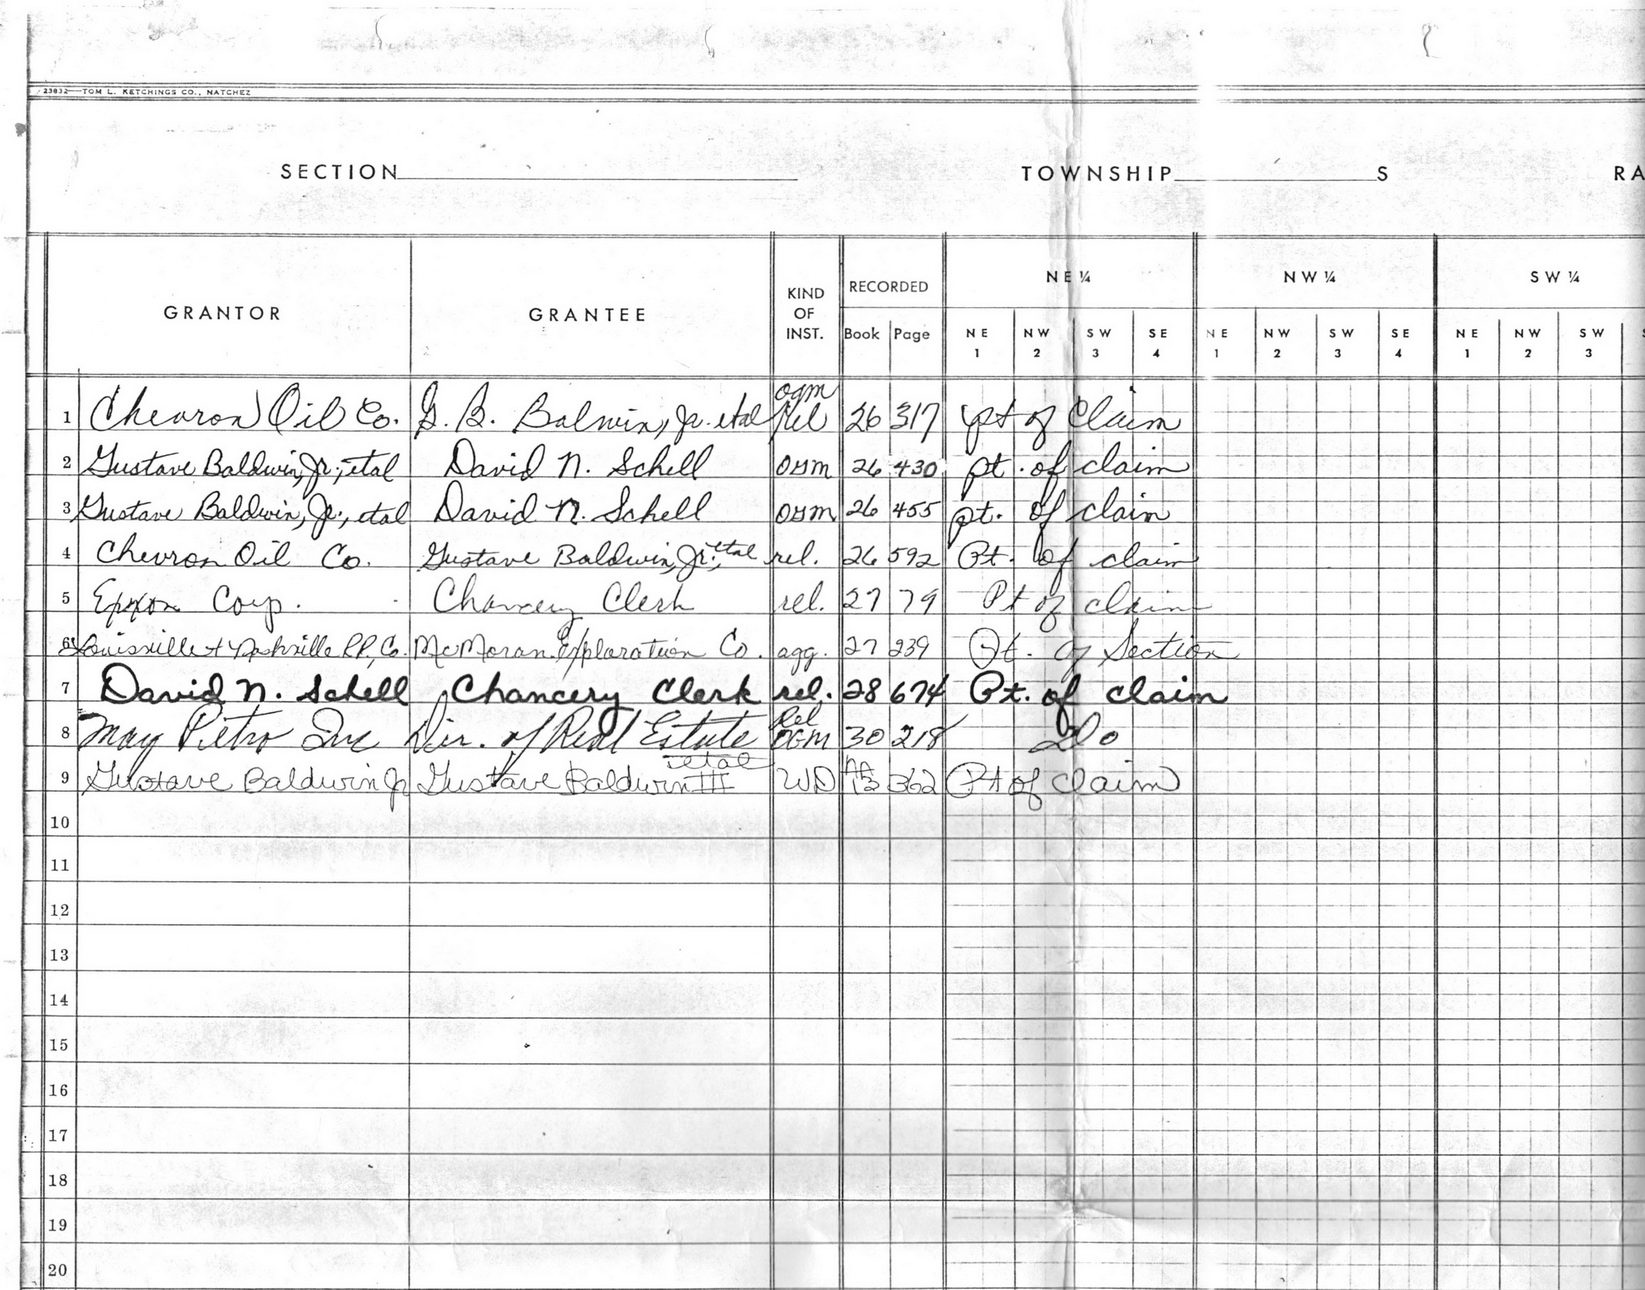 23832—TOM L. KETCHINGS CO., NATCHEZ
SECTION TOWNSHIP S RA
GRANTOR GRANTEE KIND OF INST. RECORDED Book Page NE ¼ NW ¼ SW ¼
NE 1 NW 2 SW 3 SE 4 NE 1 NW 2 SW 3 SE 4 NE 1 NW 2 SW 3
1 Chevron Oil Co. G. B. Balwin, Jr. etal ogm rel 26 317 pt of Claim
2 Gustave Baldwin, Jr., etal David N. Schell OGM 26 430 pt. of claim
3 Gustave Baldwin, Jr., etal David N. Schell OGM 26 455 pt. of claim
4 Chevron Oil Co. Gustave Baldwin, Jr., etal rel. 26 592 Pt. of claim
5 Exxon Corp. Chancery Clerk rel. 27 79 Pt of claim
6 Louisville & Nashville RR. Co. McMoran Exploration Co. agg. 27 239 Pt. of Section
7 David N. Schell Chancery Clerk rel. 28 674 Pt. of claim
8 May Petro Inc Dir. of Real Estate etal Rel OGM 30 218 Do
9 Gustave Baldwin Jr Gustave Baldwin III WD AA 13 362 Pt of claim
10
11
12
13
14
15
16
17
18
19
20